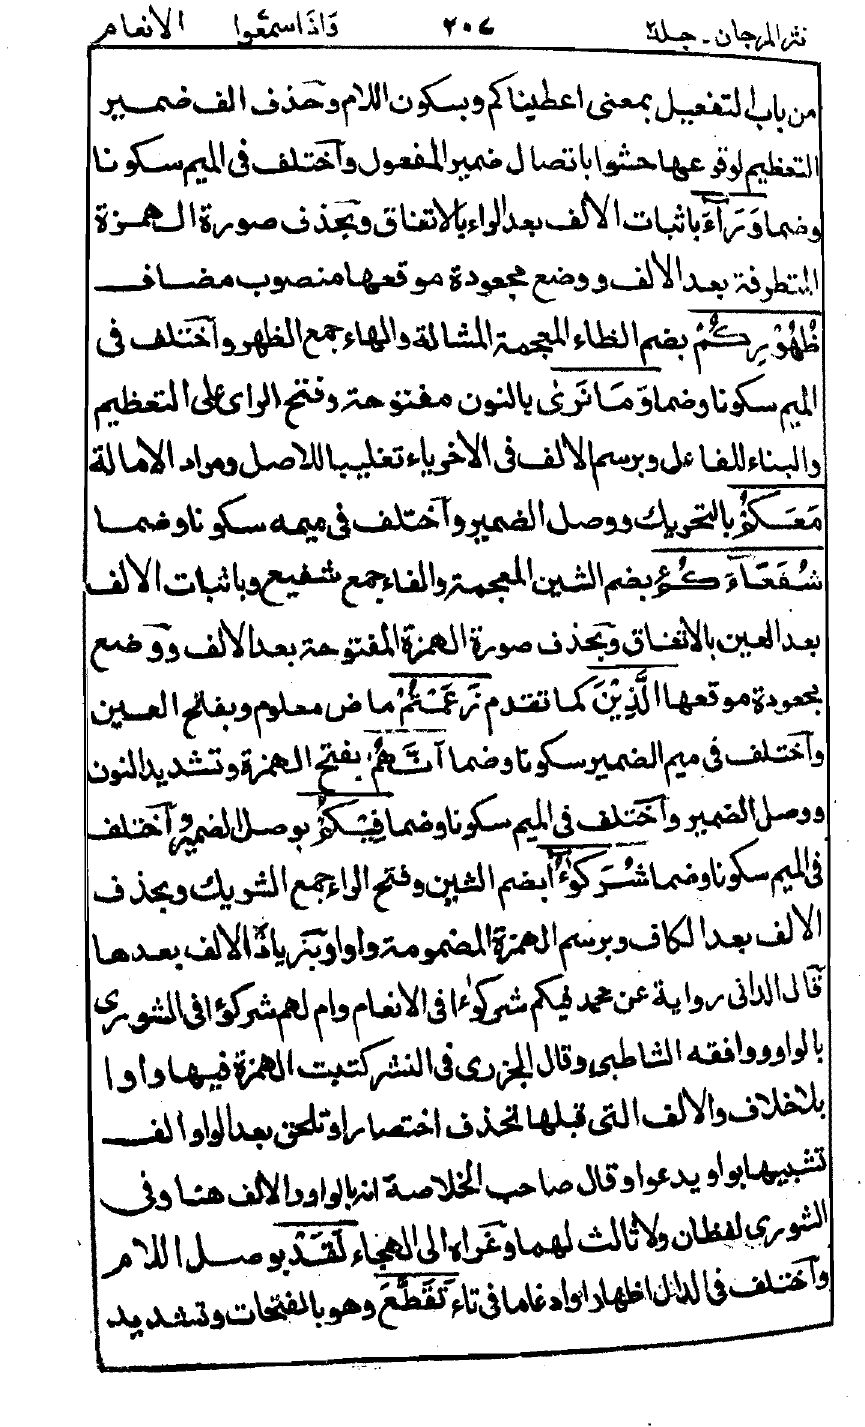 نثر المرجان - جلد٢ ٢٠٧ وَاذَا سمعُوا الانعام
من باب التفعيل بمعنى اعطيناكم وبسكون اللام وحذف الف ضمير
التعظيم لوقوعها حشوا باتصال ضمير المفعول وآختلف فى الميم سكونا
وضما وَرَآءَ باثبات الالف بعد الراء بالاتفاق وبحذف صورة الهمزة
المتطرفة بعد الالف ووضع مجعودة موقعها منصوب مضاف
ظُهُوْرِكُمْ بضم الظاء المعجمة المشالة والهاء جمع الظهر وآختلف فى
الميم سكونا وضما وَمَا نَرٰى بالنون مفتوحة وفتح الراى على التعظيم
والبناء للفاعل وبرسم الالف فى الاخرياء تغليبا للاصل ومراد الامالة
مَعَكُمْ بالتحريك ووصل الضمير وآختلف فى ميمه سكونا وضما
شُفَعَآءَكُمُ بضم الشين المعجمة والفاء جمع شفيع وباثبات الالف
بعد العين بالاتفاق وبحذف صورة الهمزة المفتوحة بعد الالف ووضع
مجعودة موقعها الَّذِيْنَ كما تقدم زَعَمْتُمْ ماض معلوم وبفتح العين
وآختلف فى ميم الضمير سكونا وضما اَنَّهُمْ بفتح الهمزة وتشديد النون
ووصل الضمير وآختلف فى الميم سكونا وضما فِيْكُمْ بوصل الضمير وآختلف
فى الميم سكونا وضما شُرَكٰٓؤُا بضم الشين وفتح الراء جمع الشريك وبحذف
الالف بعد الكاف وبرسم الهمزة المضمومة واوا وبزيادة الالف بعدها
قال الدانى رواية عن محمد فيكم شركؤا فى الانعام وام لهم شركؤا فى الشورى
بالواو ووافقه الشاطبى وقال الجزرى فى النشر كتبت الهمزة فيها واوا
بلاخلاف والالف التى قبلها تحذف اختصارا وتلحق بعد الواو الف
تشبيها بواو يدعوا وقال صاحب الخلاصة انه بالواو والالف هنا وفى
الشورى لفظان ولا ثالث لهما وعزاه الى الهجاء لَقَدْ بوصل اللام
وآختلف فى الدال اظهارا وادغاما فى تاء تَقَطَّعَ وهو بالفتحات وتشديد